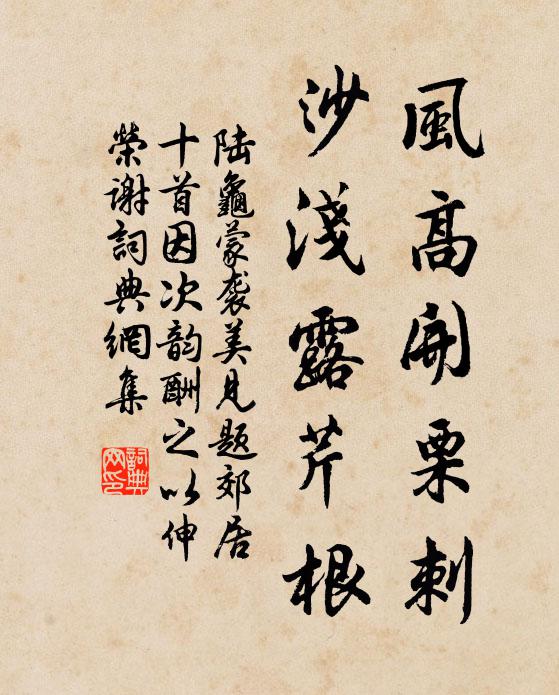 風高開栗刺
沙淺露芹根
陆龜蒙袭美見題郊居
十首因次韵酬之以伸
榮谢詞典網集
詞典网印